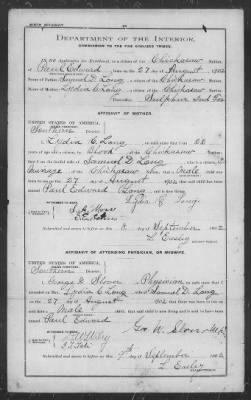 BIRTH AFFIDAVIT.
DEPARTMENT OF THE INTERIOR,
COMMISSION TO THE FIVE CIVILIZED TRIBES.
In Re Application for Enrollment, as a citizen of the Chickasaw Nation,
of Paul Edward, born on the 27 day of August, 1902
Name of Father: Samuel D. Long a citizen of the Chickasaw Nation.
Name of Mother: Lydia C. Long a citizen of the Chickasaw Nation.
Postoffice Sulphur Ind Ter
AFFIDAVIT OF MOTHER.
UNITED STATES OF AMERICA,
INDIAN TERRITORY,
Southern District.
I, Lydia C. Long, on oath state that I am
years of age and a citizen by of the Chickasaw
Nation; that I am the lawful wife of Samuel D. Long, who is a citizen, by
of the Chickasaw Nation; that a Male child was
born to me on the 27 day of August, 1902, that said child has been
named Paul Edward Long, and is now living.
Subscribed and sworn to before me this 8 day of September 1902
AFFIDAVIT OF ATTENDING PHYSICIAN, OR MIDWIFE.
UNITED STATES OF AMERICA,
INDIAN TERRITORY,
Southern District.
I, George W. Slover, a Physician, on oath state that I
attended on Mrs. Lydia C. Long, wife of Samuel D. Long
on the 27 day of August, 1902, that there was born to her on said
date a Male child; that said child is now living and is said to have been
named Paul Edward
Geo. W. Slover M.D.
Subscribed and sworn to before me this 9th day of September 1902